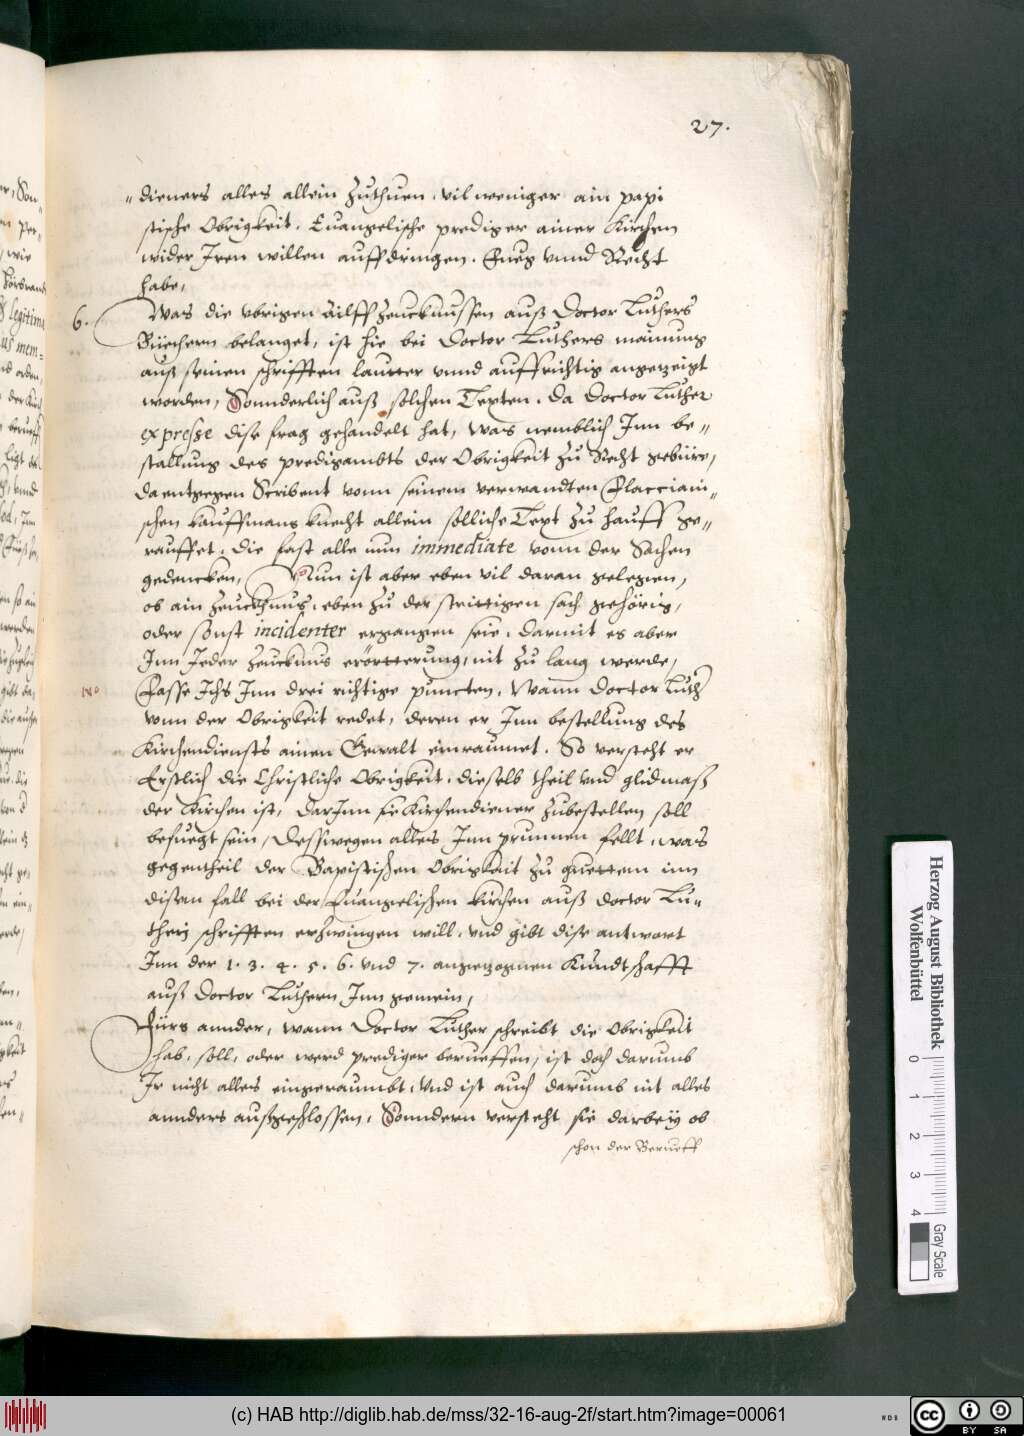 27.
" dieners alles allein zuthuen, vil weniger ain papi
stische Obrigkeit, Euangelische prediger ainer Kirchen
wider Iren willen auffdringen, Fueg vnnd Recht
habe,
6. Was die vbrigen ailff zeucknussen auß Doctor Luthers
Büechern belanget, ist hie bei Doctor Luthers mainung
auß seinen schrifften lautter vnnd auffrichtig angezeigt
worden, Sonnderlich auß solchen Texten, da Doctor Luther
expresse dise frag gehandelt hat, was nemblich Inn be=
stallung des predigambts der Obrigkeit zu Recht gebüre,
da entgegen Scribent vonn seinem verwandten Flacciani=
schen kauffmans knecht allein solliche Text zu hauff ge=
rauffet, die fast alle nun immediate vonn der Sachen
gedencken, Nun ist aber eben vil daran gelegen,
ob ain zeucknus, eben zu der strittigen sach gehörig,
oder sonst incidenter ergangen seie, darmit es aber
Inn Jeder zeucknus erörtterung, nit zu lang werde,
No Fasse Ichs Inn drei richtige puncten, Wann Doctor Luth
vonn der Obrigkeit redet, deren er Inn bestellung des
Kirchendiensts ainen Gewalt einraumet, So versteht er
Erstlich die Christliche Obrigkeit, dieselb theil vnd glidmaß
der Kirchen ist, Darinn sie Kirchendiener zubestellen soll
befuegt sein, Desswegen alles Inn prunnen fellt, was
gegentheil der Bapistischen Obrigkait zu guettem inn
disem fall bei der Euangelischen kirchen auß doctor Lu=
therj schrifften erzwingen will, vnd gibt dise antwort
Inn der 1. 3. 4. 5. 6. vnd 7. angezognen Kundtschafft
auß Doctor Luthern Inn gemein,
Fürs annder, wann Doctor Luther schreibt die Obrigkeit
hab, soll, oder werd prediger berueffen, ist doch darumb
Ir nicht alles eingeraumbt, vnd ist auch darumb nit alles
annders außgeschlossen, Sonndern versteht sie darbeÿ ob
schon der Berueff
Herzog August Bibliothek
Wolfenbüttel
0 1 2 3 4
Gray Scale
(c) HAB http://diglib.hab.de/mss/32-16-aug-2f/start.htm?image=00061
WDB
cc BY SA